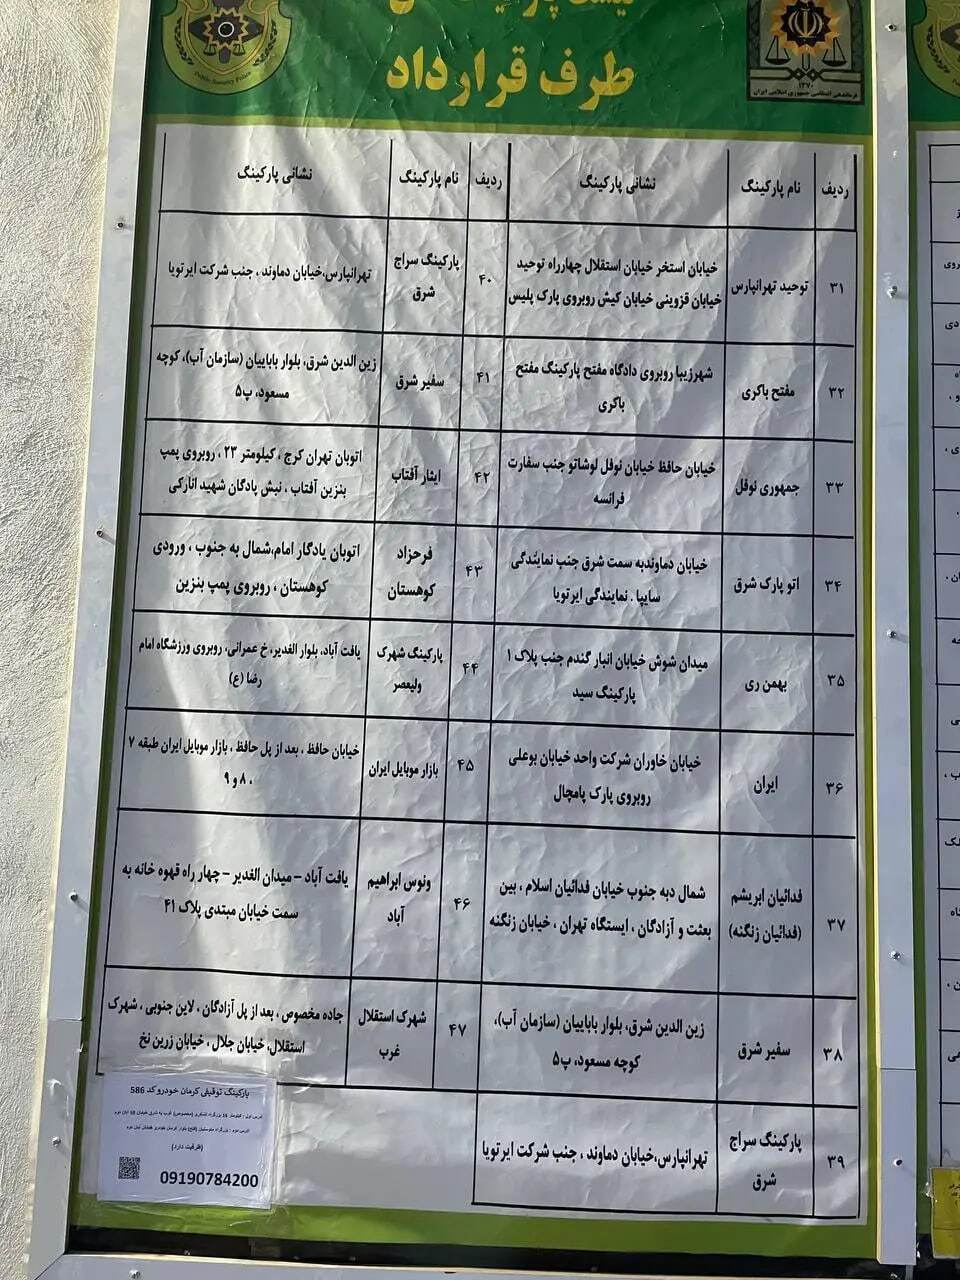 طرف قرارداد
Public Security Police
۱۳۷۰
فرماندهی انتظامی جمهوری اسلامی ایران
ردیف نام پارکینگ نشانی پارکینگ
۳۱ توحید تهرانپارس خیابان استخر خیابان استقلال چهارراه توحید
خیابان قزوینی خیابان کیش روبروی پارک پلیس
۳۲ مفتح باکری شهرزیبا روبروی دادگاه مفتح پارکینگ مفتح
باکری
۳۳ جمهوری نوفل خیابان حافظ خیابان نوفل لوشاتو جنب سفارت
فرانسه
۳۴ اتو پارک شرق خیابان دماوندبه سمت شرق جنب نمایندگی
سایپا . نمایندگی ایرتویا
۳۵ بهمن ری میدان شوش خیابان انبار گندم جنب پلاک ۱
پارکینگ سید
۳۶ ایران خیابان خاوران شرکت واحد خیابان بوعلی
روبروی پارک پامچال
۳۷ فدائیان ابریشم
(فدائیان زنگنه) شمال دبه جنوب خیابان فدائیان اسلام ، بین
بعثت و آزادگان ، ایستگاه تهران ، خیابان زنگنه
۳۸ سفیر شرق زین الدین شرق، بلوار بابائیان (سازمان آب)،
کوچه مسعود، پ۵
۳۹ پارکینگ سراج
شرق تهرانپارس،خیابان دماوند ، جنب شرکت ایرتویا
ردیف نام پارکینگ نشانی پارکینگ
۴۰ پارکینگ سراج
شرق تهرانپارس،خیابان دماوند ، جنب شرکت ایرتویا
۴۱ سفیر شرق زین الدین شرق، بلوار بابائیان (سازمان آب)، کوچه
مسعود، پ۵
۴۲ ایثار آفتاب اتوبان تهران کرج ، کیلومتر ۲۳ ، روبروی پمپ
بنزین آفتاب ، نبش پادگان شهید انارکی
۴۳ فرحزاد
کوهستان اتوبان یادگار امام،شمال به جنوب ، ورودی
کوهستان ، روبروی پمپ بنزین
۴۴ پارکینگ شهرک
ولیعصر یافت آباد، بلوار الغدیر، خ عمرانی، روبروی ورزشگاه امام
رضا (ع)
۴۵ بازار موبایل ایران خیابان حافظ ، بعد از پل حافظ ، بازار موبایل ایران طبقه ۷
، ۸ و ۹
۴۶ ونوس ابراهیم
آباد یافت آباد – میدان الغدیر – چهار راه قهوه خانه به
سمت خیابان مبتدی پلاک ۴۱
۴۷ شهرک استقلال
غرب جاده مخصوص ، بعد از پل آزادگان ، لاین جنوبی ، شهرک
استقلال، خیابان جلال ، خیابان زرین نخ
پارکینگ توقیفی کرمان خودرو کد 586
(ظرفیت دارد)
09190784200